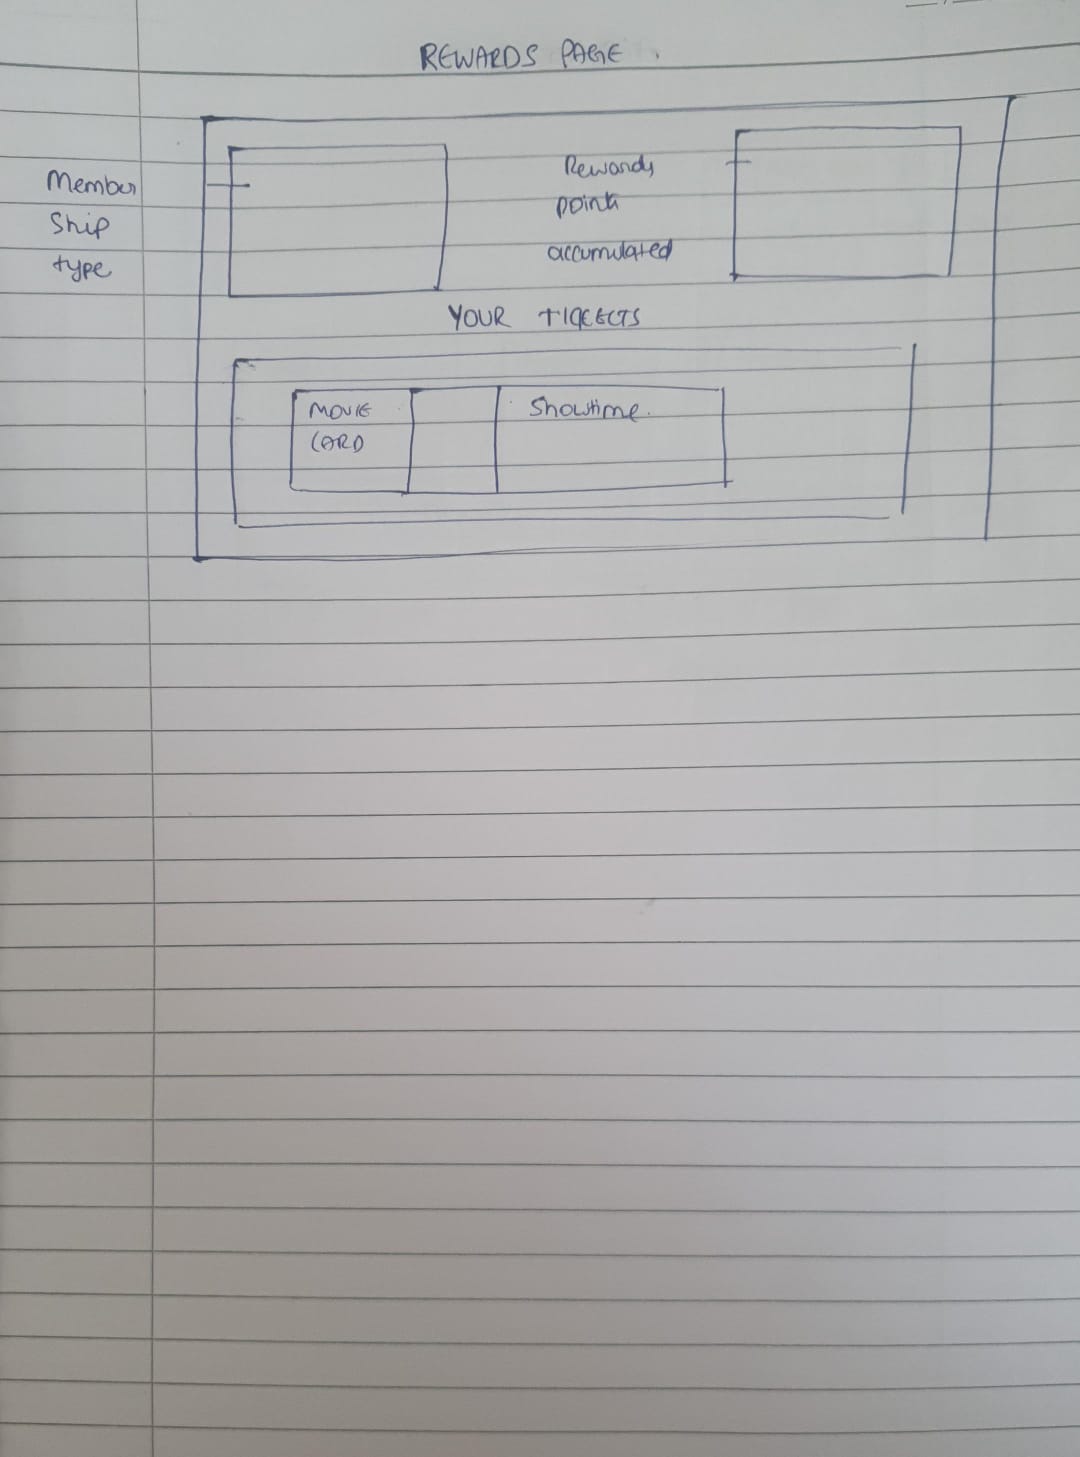 REWARDS PAGE.
Member
Ship
type
Rewards
points
accumulated
YOUR TICKECTS
MOVIE
CARD
Showtime.